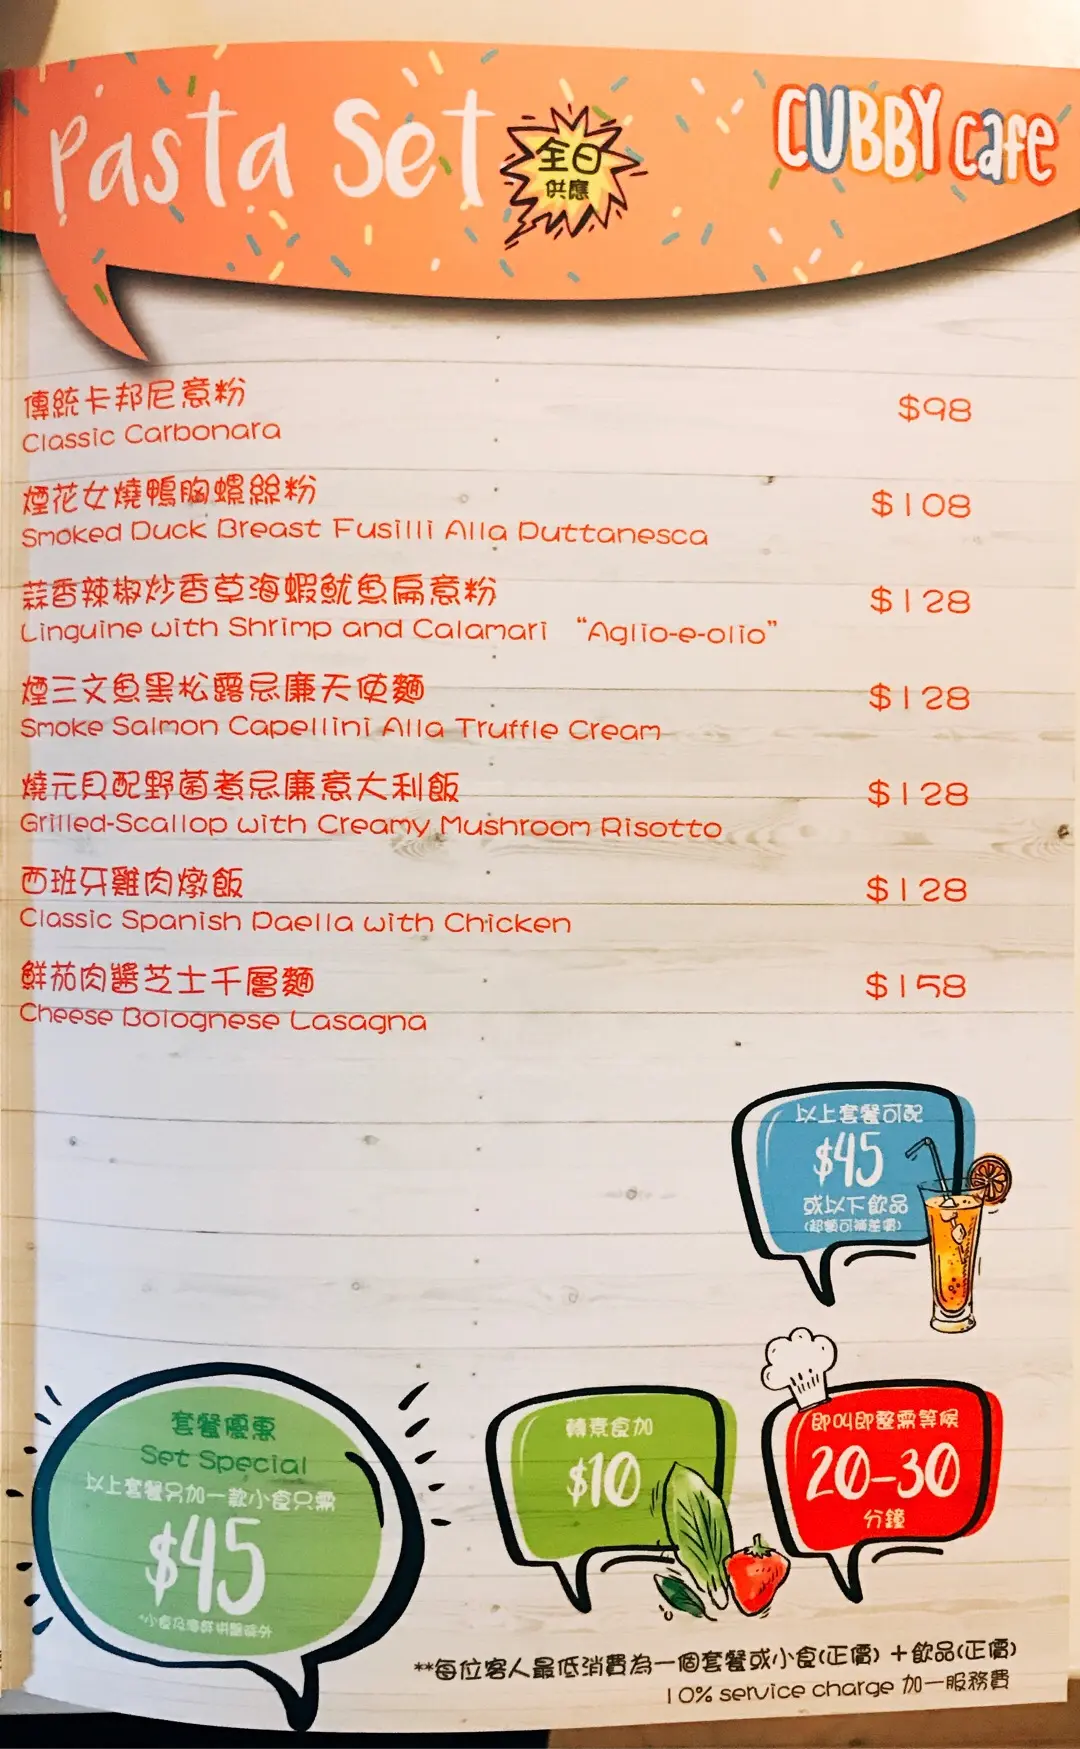 Pasta Set
全日
供應
CUBBY cafe
傳統卡邦尼意粉
$98
Classic Carbonara
煙花女燒鴨胸螺絲粉
$108
Smoked Duck Breast Fusilli Alla Puttanesca
蒜香辣椒炒香草海蝦魷魚扁意粉
$128
Linguine with Shrimp and Calamari “Aglio-e-olio”
煙三文魚黑松露忌廉天使麵
$128
Smoke Salmon Capellini Alla Truffle Cream
燒元貝配野菌煮忌廉意大利飯
$128
Grilled-Scallop with Creamy Mushroom Risotto
西班牙雞肉燉飯
$128
Classic Spanish Paella with Chicken
鮮茄肉醬芝士千層麵
$158
Cheese Bolognese Lasagna
以上套餐可配
$45
或以下飲品
(超額可補差價)
套餐優惠
Set Special
以上套餐另加一款小食只需
$45
*小食及海鮮拼盤除外
轉素食加
$10
即叫即整需等候
20-30
分鐘
**每位客人最低消費為一個套餐或小食(正價)＋飲品(正價)
10% service charge 加一服務費